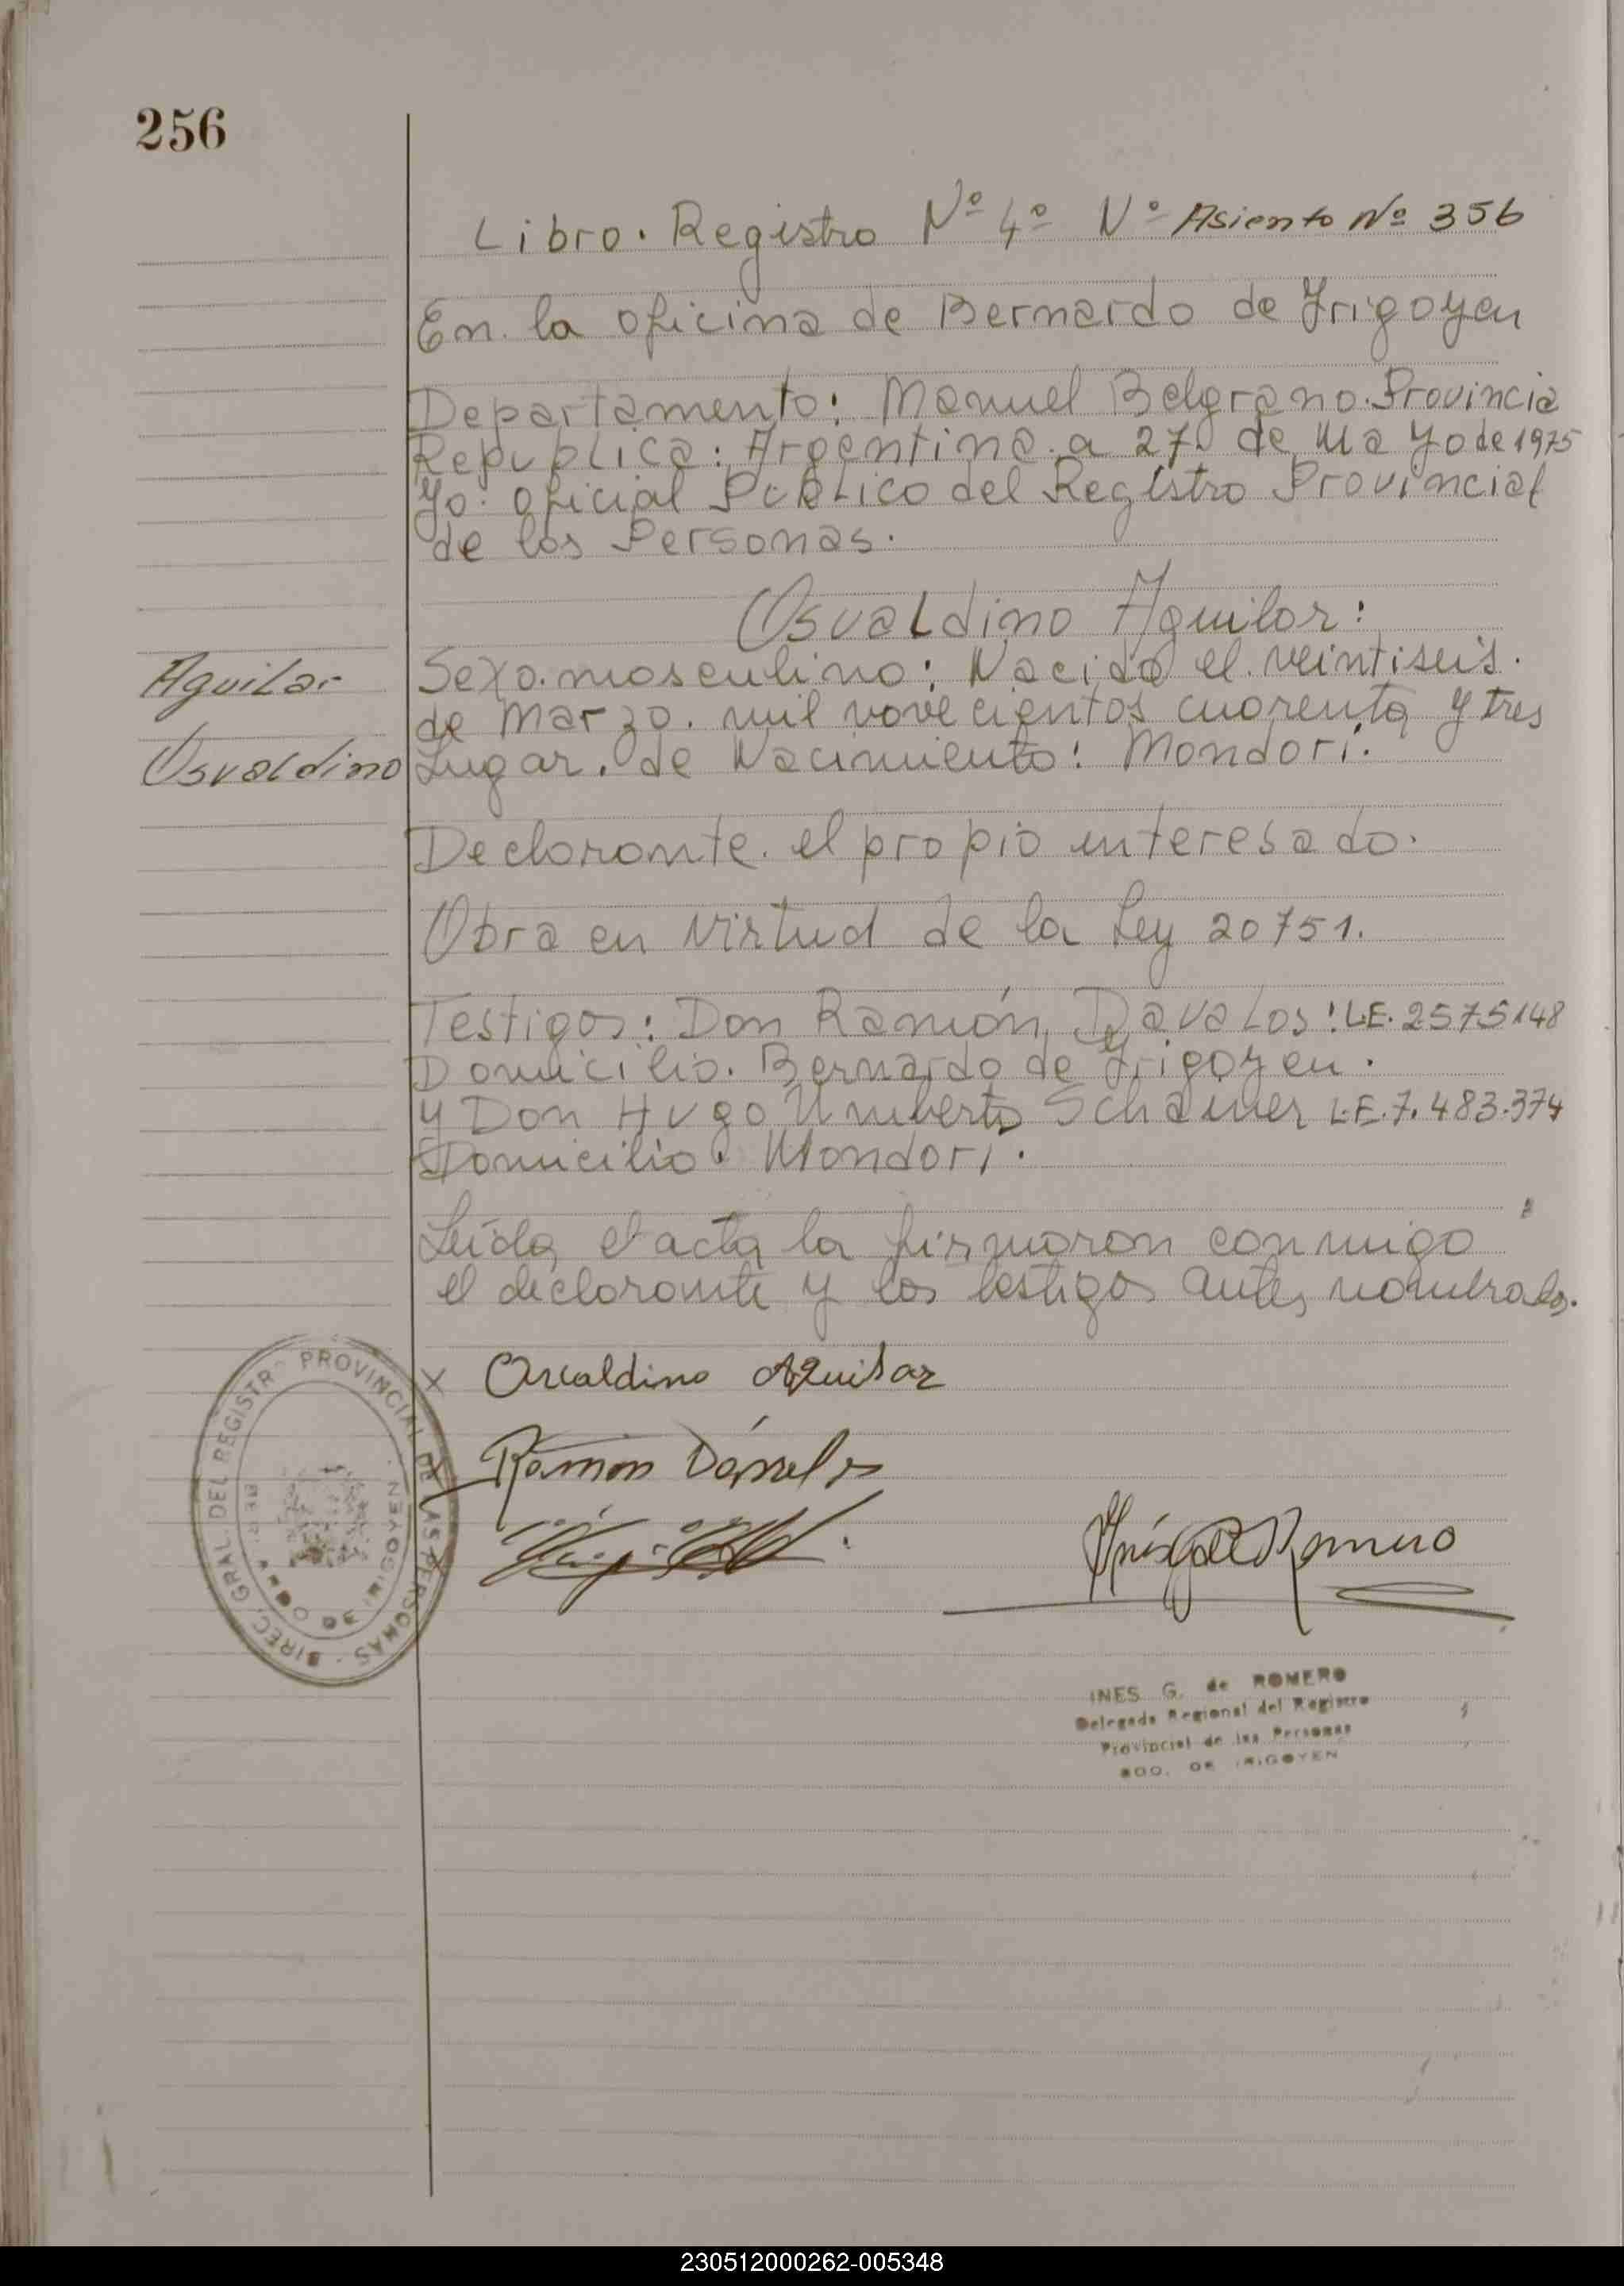 256
Libro. Registro Nº 4º Nº Asiento Nº 356
En. la oficina de Bernardo de Irigoyen
Departamento: Manuel Belgrano. Provincia
Republica: Argentina. a 27 de Mayo de 1975
Yo: oficial Publico del Registro Provincial
de las Personas.
Osvaldino Aguilar:
Aguilar
Sexo. masculino: Nacido el. veintiseis.
de Marzo. mil novecientos cuarenta y tres
Osvaldino
Lugar. de Nacimiento: Mondori.
Declarante. el propio interesado.
Obra en virtud de la Ley 20751.
Testigos: Don Ramón Davalos: L.E. 2575148
Domicilio. Bernardo de Irigoyen.
y Don Hugo Umberto L.E. 7.483.374
Domicilio. Mondori.
Leída el acta la firmaron conmigo
el declarante y los testigos antes nombrados.
x Osvaldino Aguilar
x Ramón Dávalos
x
Inés G de Romero
DIREC. GRAL. DEL REGISTRO PROVINCIAL DE LAS PERSONAS
BDO. DE IRIGOYEN
INES G. de ROMERO
Delegada Regional del Registro
Provincial de las Personas
BDO. DE IRIGOYEN
230512000262-005348